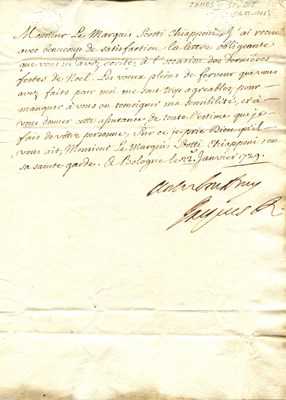 JAMES STUART
Monsieur Le Marquis Scotti Chiapponi. J'ai receu
avec beaucoup de satisfaction la lettre obligeante
que vous m'avez ecrite, à l'occasion des dernieres
festes de Noel. Les voeux pleins de ferveur que vous
avez faits pour moi me sont trop agreables, pour
manquer à vous en temoigner ma sensibilité, et à
vous donner cette assurance de toute l'estime que je
fais de vôtre personne. Sur ce je prie Dieu qu'il
vous ait, Monsieur Le Marquis Scotti Chiapponi en
sa sainte garde. A Bologne le 22. Janvier 1729.
Jacques R.